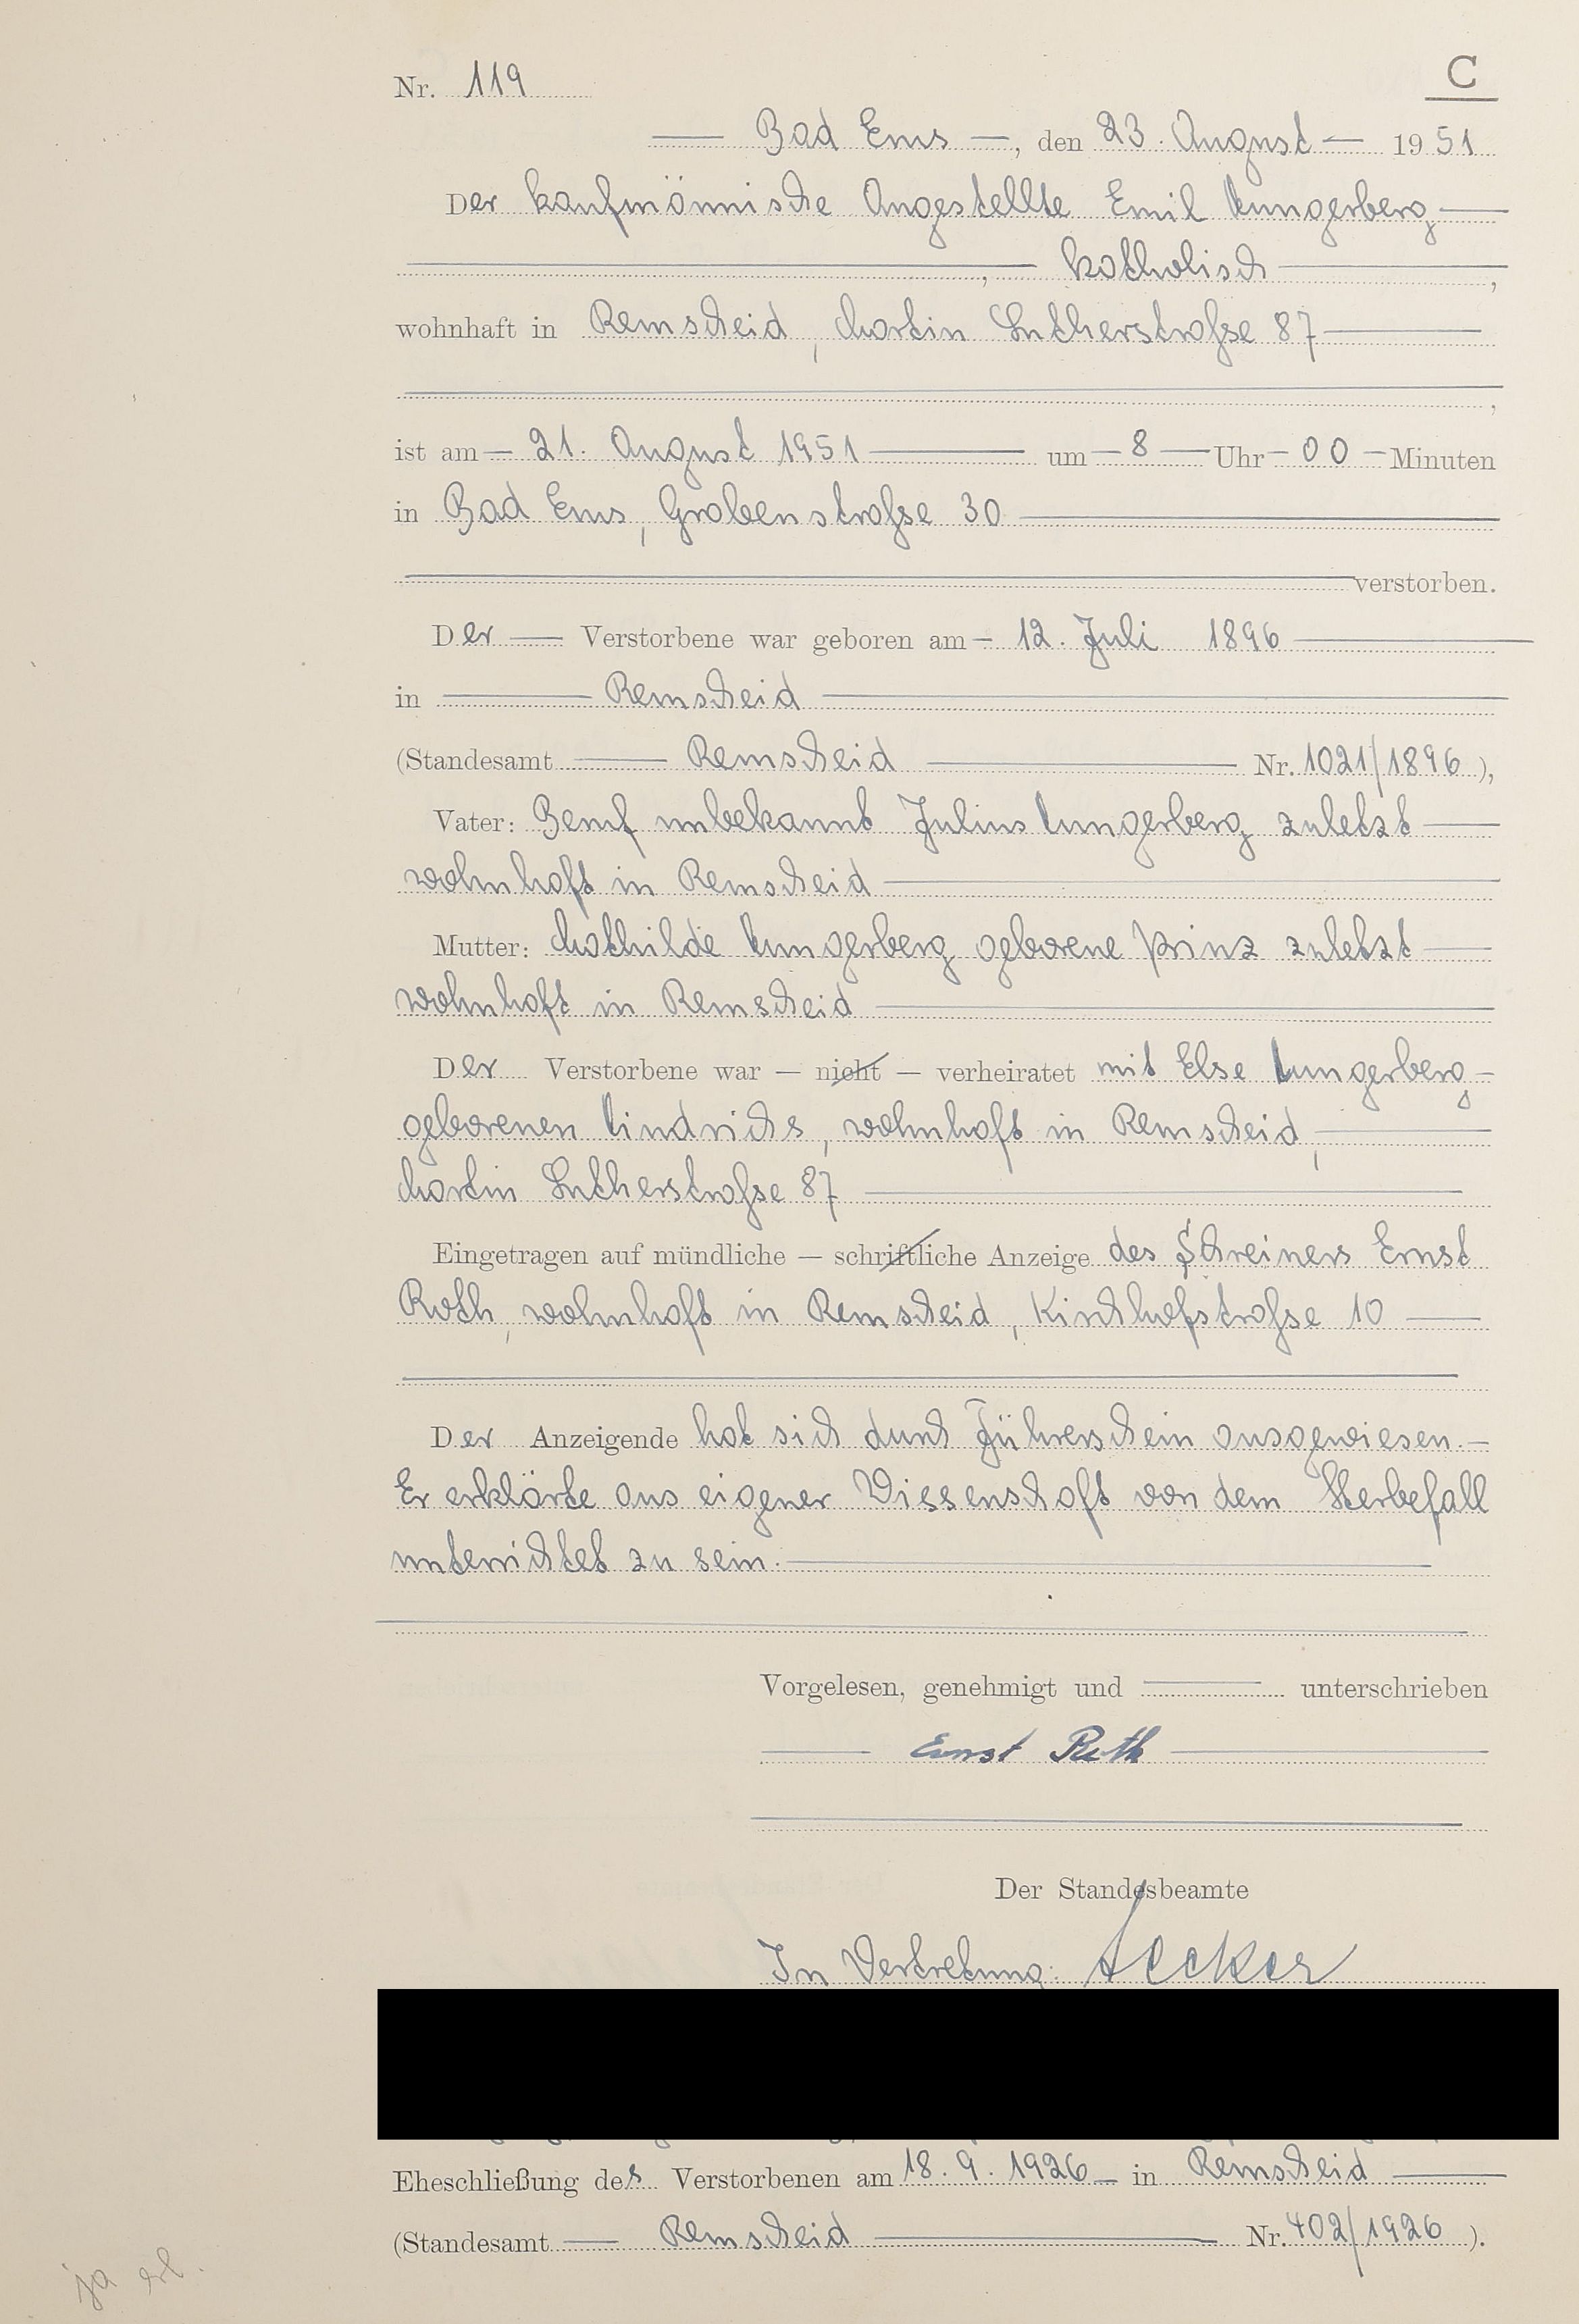 Nr. 119
C
Bad Ems, den 23. August 1951
Der kaufmännische Angestellte Emil Lungerberg
, katholisch,
wohnhaft in Remscheid, Martin Lutherstraße 87
,
ist am 21. August 1951 um 8 Uhr 00 Minuten
in Bad Ems, Grabenstraße 30
verstorben.
Der Verstorbene war geboren am 12. Juli 1896
in Remscheid
(Standesamt Remscheid Nr. 1021/1896),
Vater: Beruf unbekannt Julius Lungerberg zuletzt
wohnhaft in Remscheid
Mutter: Mathilde Lungerberg geborene Prinz zuletzt
wohnhaft in Remscheid
Der Verstorbene war — nicht — verheiratet mit Else Lungerberg
geborenen Lindrichs, wohnhaft in Remscheid,
Martin Lutherstraße 87
Eingetragen auf mündliche — schriftliche Anzeige des Schreiners Ernst
Roth, wohnhaft in Remscheid, Kirchhofstraße 10
Der Anzeigende hat sich durch Führerschein ausgewiesen.
Er erklärte aus eigener Wissenschaft von dem Sterbefall
unterrichtet zu sein.
Vorgelesen, genehmigt und unterschrieben
Ernst Roth
Der Standesbeamte
In Vertretung:
Eheschließung des Verstorbenen am 18.9.1926 in Remscheid
(Standesamt Remscheid Nr. 402/1926).
ja erl.